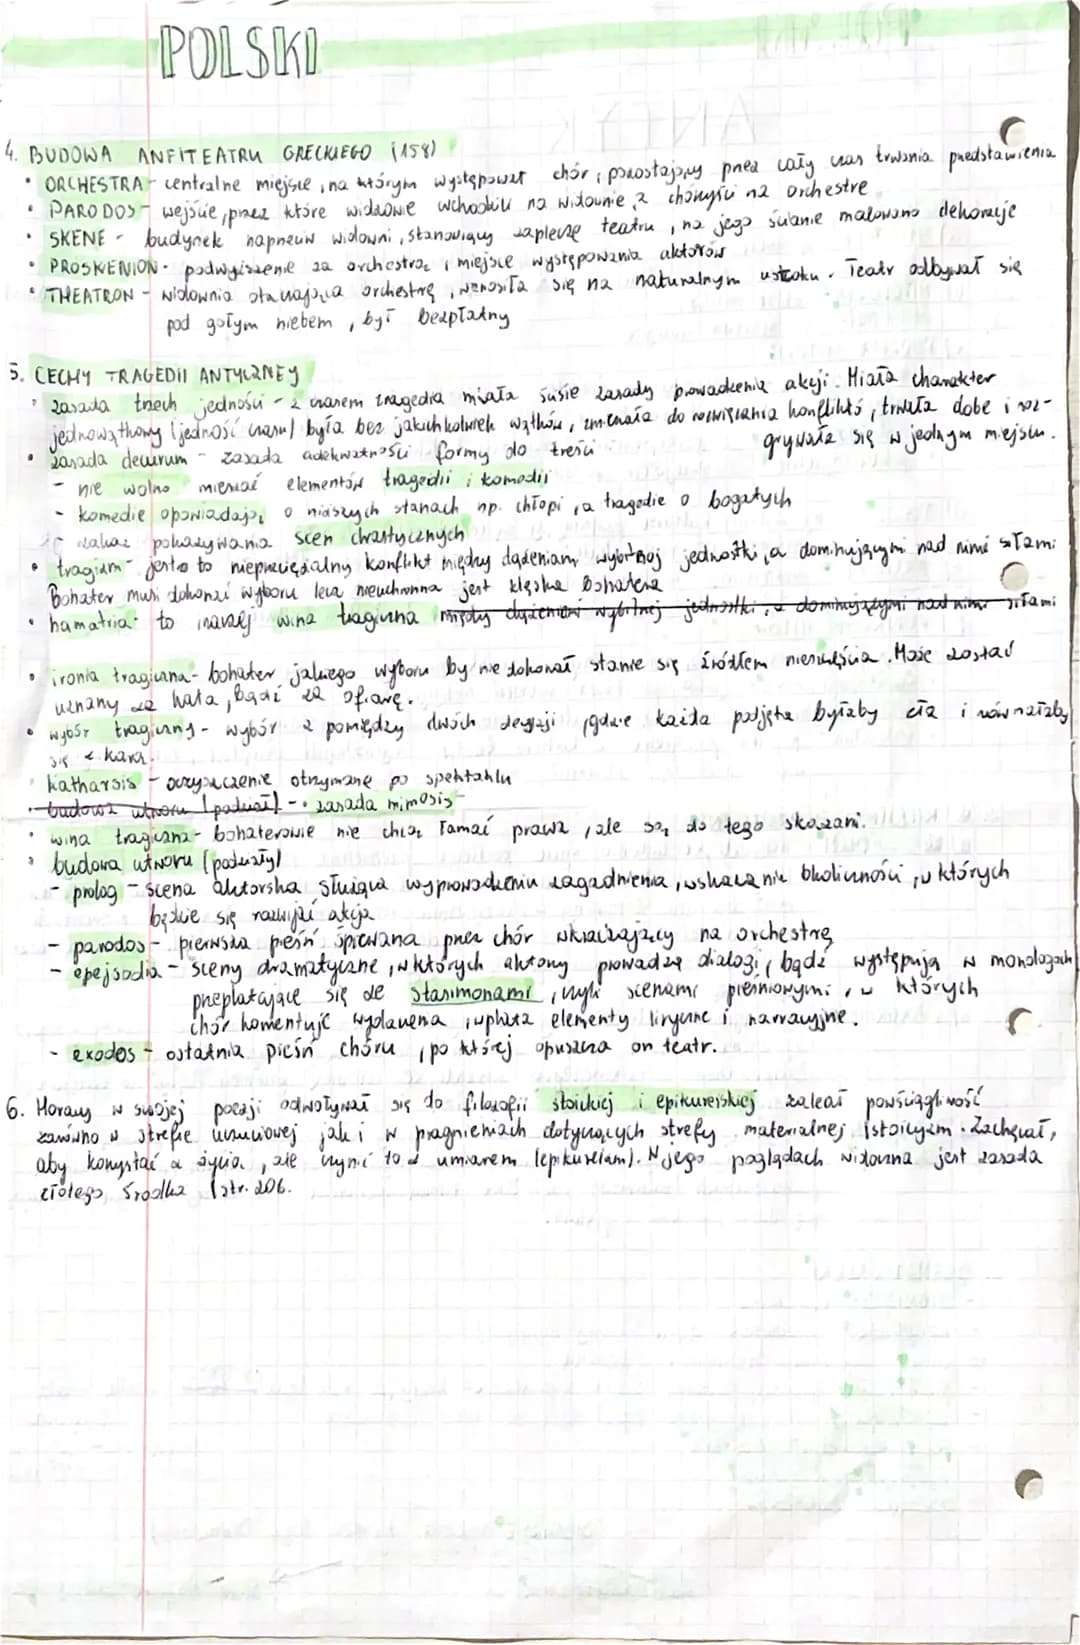 POLSKI
4. BUDOWA ANFITEATRU GRECKIEGO (158)
• ORCHESTRA - centralne miejsce, na którym występował chór, pozostający przez cały czas trwania przedstawienia
• PARODOS - wejście, przez które widzowie wchodzili na widownię, a chórzyści na orchestrę
• SKENE - budynek naprzeciw widowni, stanowiący zaplecze teatru, na jego ścianie malowano dekoracje
• PROSKENION - podwyższenie za orchestrą, miejsce występowania aktorów
• THEATRON - widownia otaczająca orchestrę, wznosiła się na naturalnym stoku. Teatr odbywał się
pod gołym niebem, był bezpłatny
5. CECHY TRAGEDII ANTYCZNEJ
• zasada trzech jedności - z czasem tragedia miała ściśle zasady prowadzenia akcji. Miała charakter
jednowątkowy (jedność czasu) była bez jakichkolwiek wątków, zmierzała do rozwiązania konfliktó, trwała dobę i roz-
grywała się w jednym miejscu.
• zasada decorum - zasada adekwatności formy do treści
- nie wolno mieszać elementów tragedii i komedii
- komedie opowiadają o niższych stanach np. chłopi, a tragedie o bogatych
- zakaz pokazywania scen drastycznych
• tragizm - jest to nieprzezwyciężalny konflikt między dążeniami wybitnej jednostki, a dominującymi nad nimi siłami
Bohater musi dokonać wyboru lecz nieuchronna jest klęska bohatera
• hamatria - to inaczej wina tragiczna między dążeniami wybitnej jednostki, a dominującymi nad nimi siłami
• ironia tragiczna - bohater jakiego wyboru by nie dokonał stanie się źródłem nieszczęścia. Może zostać
uznany za kata, bądź za ofiarę.
• wybór tragiczny - wybór z pomiędzy dwóch decyzji, gdzie każda podjęta byłaby zła i równałaby
się z karą.
katharsis - oczyszczenie otrzymane po spektaklu
• budowa utworu (podział) - • zasada mimosis
• wina tragiczna - bohaterowie nie chcą łamać prawa, ale są do tego skazani.
• budowa utworu (podziały)
- prolog - scena aktorska służąca wyprowadzeniu zagadnienia, wskazanie okoliczności, w których
będzie się rozwijać akcja
- parodos - pierwsza pieśń śpiewana przez chór wkraczający na orchestrę
- epejsodia - sceny dramatyczne, w których aktorzy prowadzą dialogi, bądź występują w monologach
przeplatające się ze stasimonami, czyli scenami pieśniowymi, w których
chór komentuje wydarzenia, wplata elementy liryczne i narracyjne.
- exodos - ostatnia pieśń chóru, po której opuszcza on teatr.
6. Horacy w swojej poezji odwoływał się do filozofii stoickiej i epikurejskiej zalecał powściągliwość
zarówno w strefie uczuciowej jak i w pragnieniach dotyczących strefy materialnej (stoicyzm. Zachęcał,
aby korzystać z życia, ale czynić to z umiarem (epikureizm). W jego poglądach widoczna jest zasada
złotego środka (str. 206.